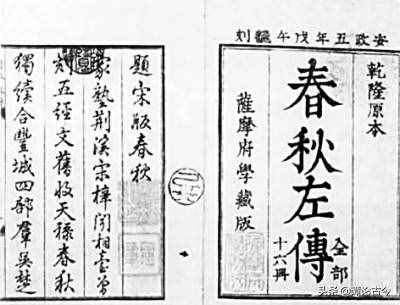 安政五年戊午翻刻
乾隆原本
春秋左傳
全部
十六冊
薩摩府學藏版
題宋版春秋
家塾荊溪宋梓聞相臺曾
刻五經文舊收天祿春秋
獨續合豐城四部羣吳楚
头条 @